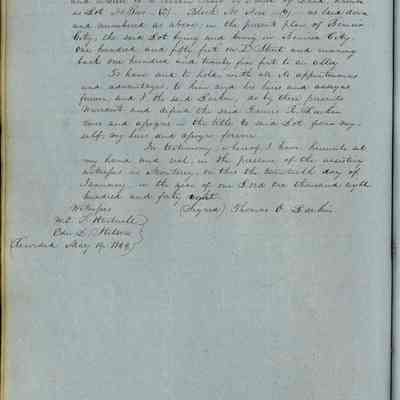 and numbered as above, in the present plan of Benicia
City, the said Lot lying and being in Benicia City,
one hundred and fifty feet on D. Street and running
back one hundred and twenty five feet to an alley
To have and to hold with all its appurtenances
and advantages, to him and his heirs and assigns
forever, and I the said Larkin, do by these presents
Warrant and defend the said
and assigns in the title to said Lot from my-
self, my heirs and assigns forever
In testimony whereof I have hereunto set
my hand and seal, in the presence of the assisting
witnesses in Monterey, on this the twentieth day of
January, in the year of our Lord one thousand eight
hundred and forty eight
Witnesses (Signed) Thomas O. Larkin
W. E. P. Hartnell
Recorded May 19, 1849